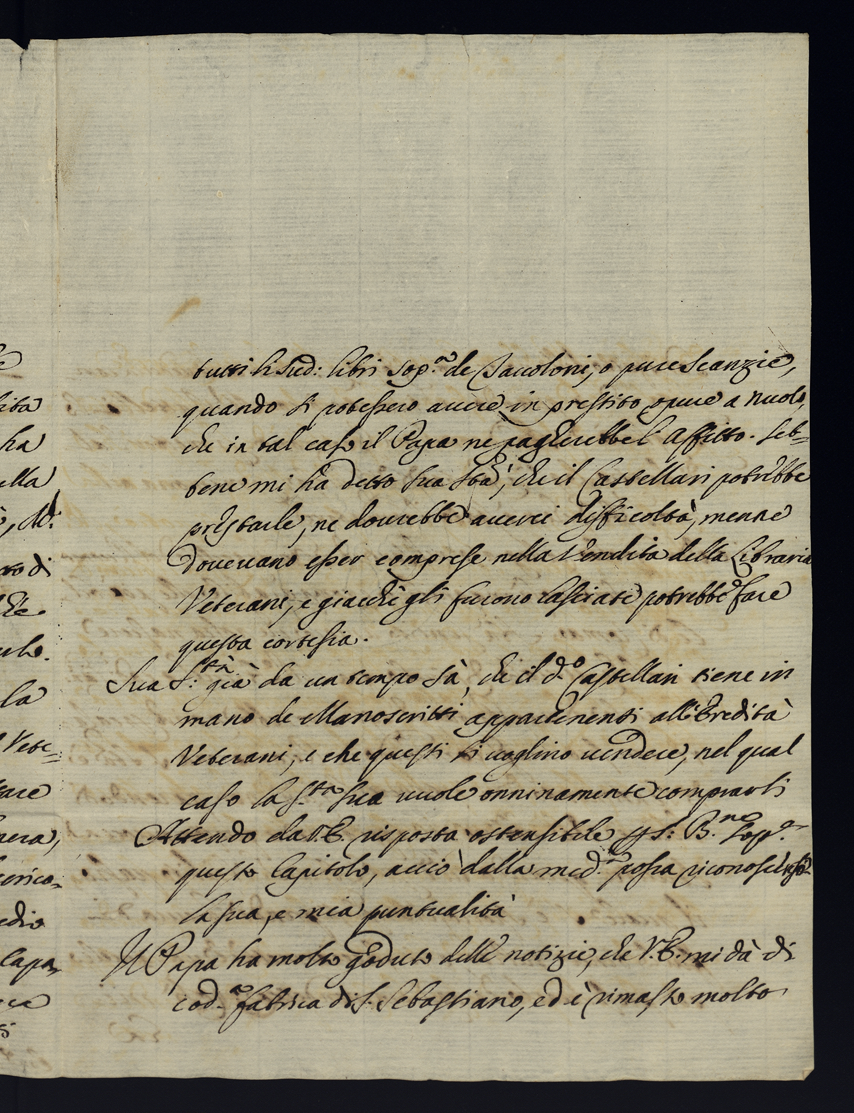 tutti li sud: libri sop.ª de Bacoloni, o pure Scanzie,
quando si potessero avere in prestito, opure a nuolo,
che in tal caso il Papa ne pagherebbe l'Affitto. Seb=
bene mi hà detto Sua Stà, che il Castellari potrebbe
prestarle, ne dovrebbe averci difficoltà, mentre
dovevano esser comprese nella Vendita della Libraria
Veterani, e giacchè gli furono lasciate potrebbe fare
questa cortesia.
Sua S:tà già da un tempo sà, che il dº Castellari tiene in
mano de Manoscritti appartenenti all'Eredità
Veterani, e che questi si voglino vendere, nel qual
caso la S.tà Sua vuole onninamente comprarli
Attendo da V.E. risposta ostensibile a S: B.ne Sopª
questo Capitolo, acciò dalla med.ª possa riconoscersi
la sua, e mia puntualità
Il Papa ha molto goduto delle notizie, che V.E. mi dà di
cod.ª fabrica di S. Sebastiano, ed è rimasto molto
ita
ha
ella
di
la
Vete=